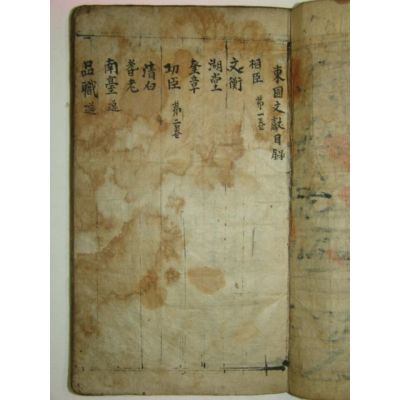 東國文獻目錄
相臣 第一卷
文衡
湖堂
奎章
功臣 第二卷
淸白
耆老
南臺 逸
品職